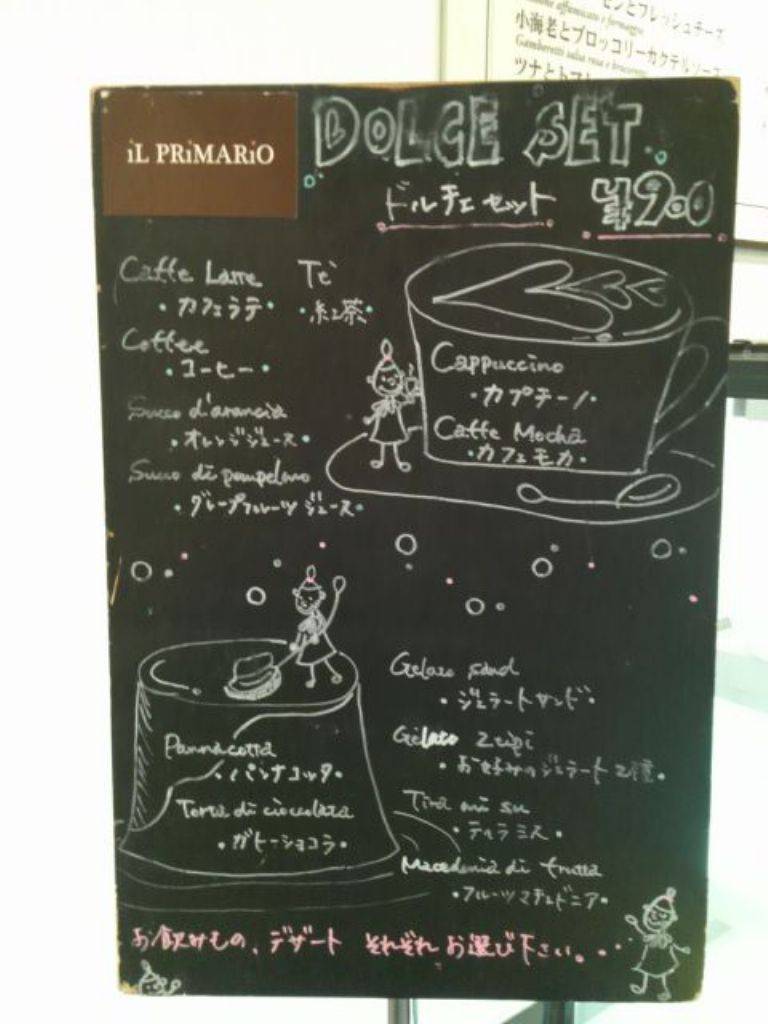 iL PRiMARiO
DOLCE SET
ドルチェセット ¥900
Caffe Latte
・カフェラテ・
Te'
・紅茶・
Coffee
・コーヒー・
Succo d'arancia
・オレンジジュース・
Succo di pompelmo
・グレープフルーツジュース・
Cappuccino
・カプチーノ・
Caffe Mocha
・カフェモカ・
Pannacotta
・パンナコッタ・
Torta di cioccolata
・ガトーショコラ・
Gelato sand
・ジェラートサンド・
Gelato 2tipi
・お好みのジェラート2種・
Tira mi su
・ティラミス・
Macedonia di frutta
・フルーツマチェドニア・
お飲みもの、デザート それぞれ お選び下さい。
フレッシュチーズ
affumicato e formaggio
小海老とブロッコリーカクテルソース
Gamberetti salsa rosa e broccoli
ツナとトマト